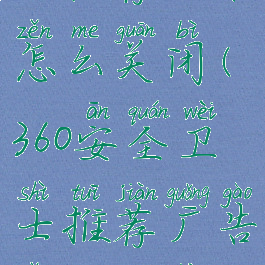 zěn me guān bì
怎么关闭(
ān quán wèi
360安全卫
shì tuī jiàn guǎng gào
士推荐广告